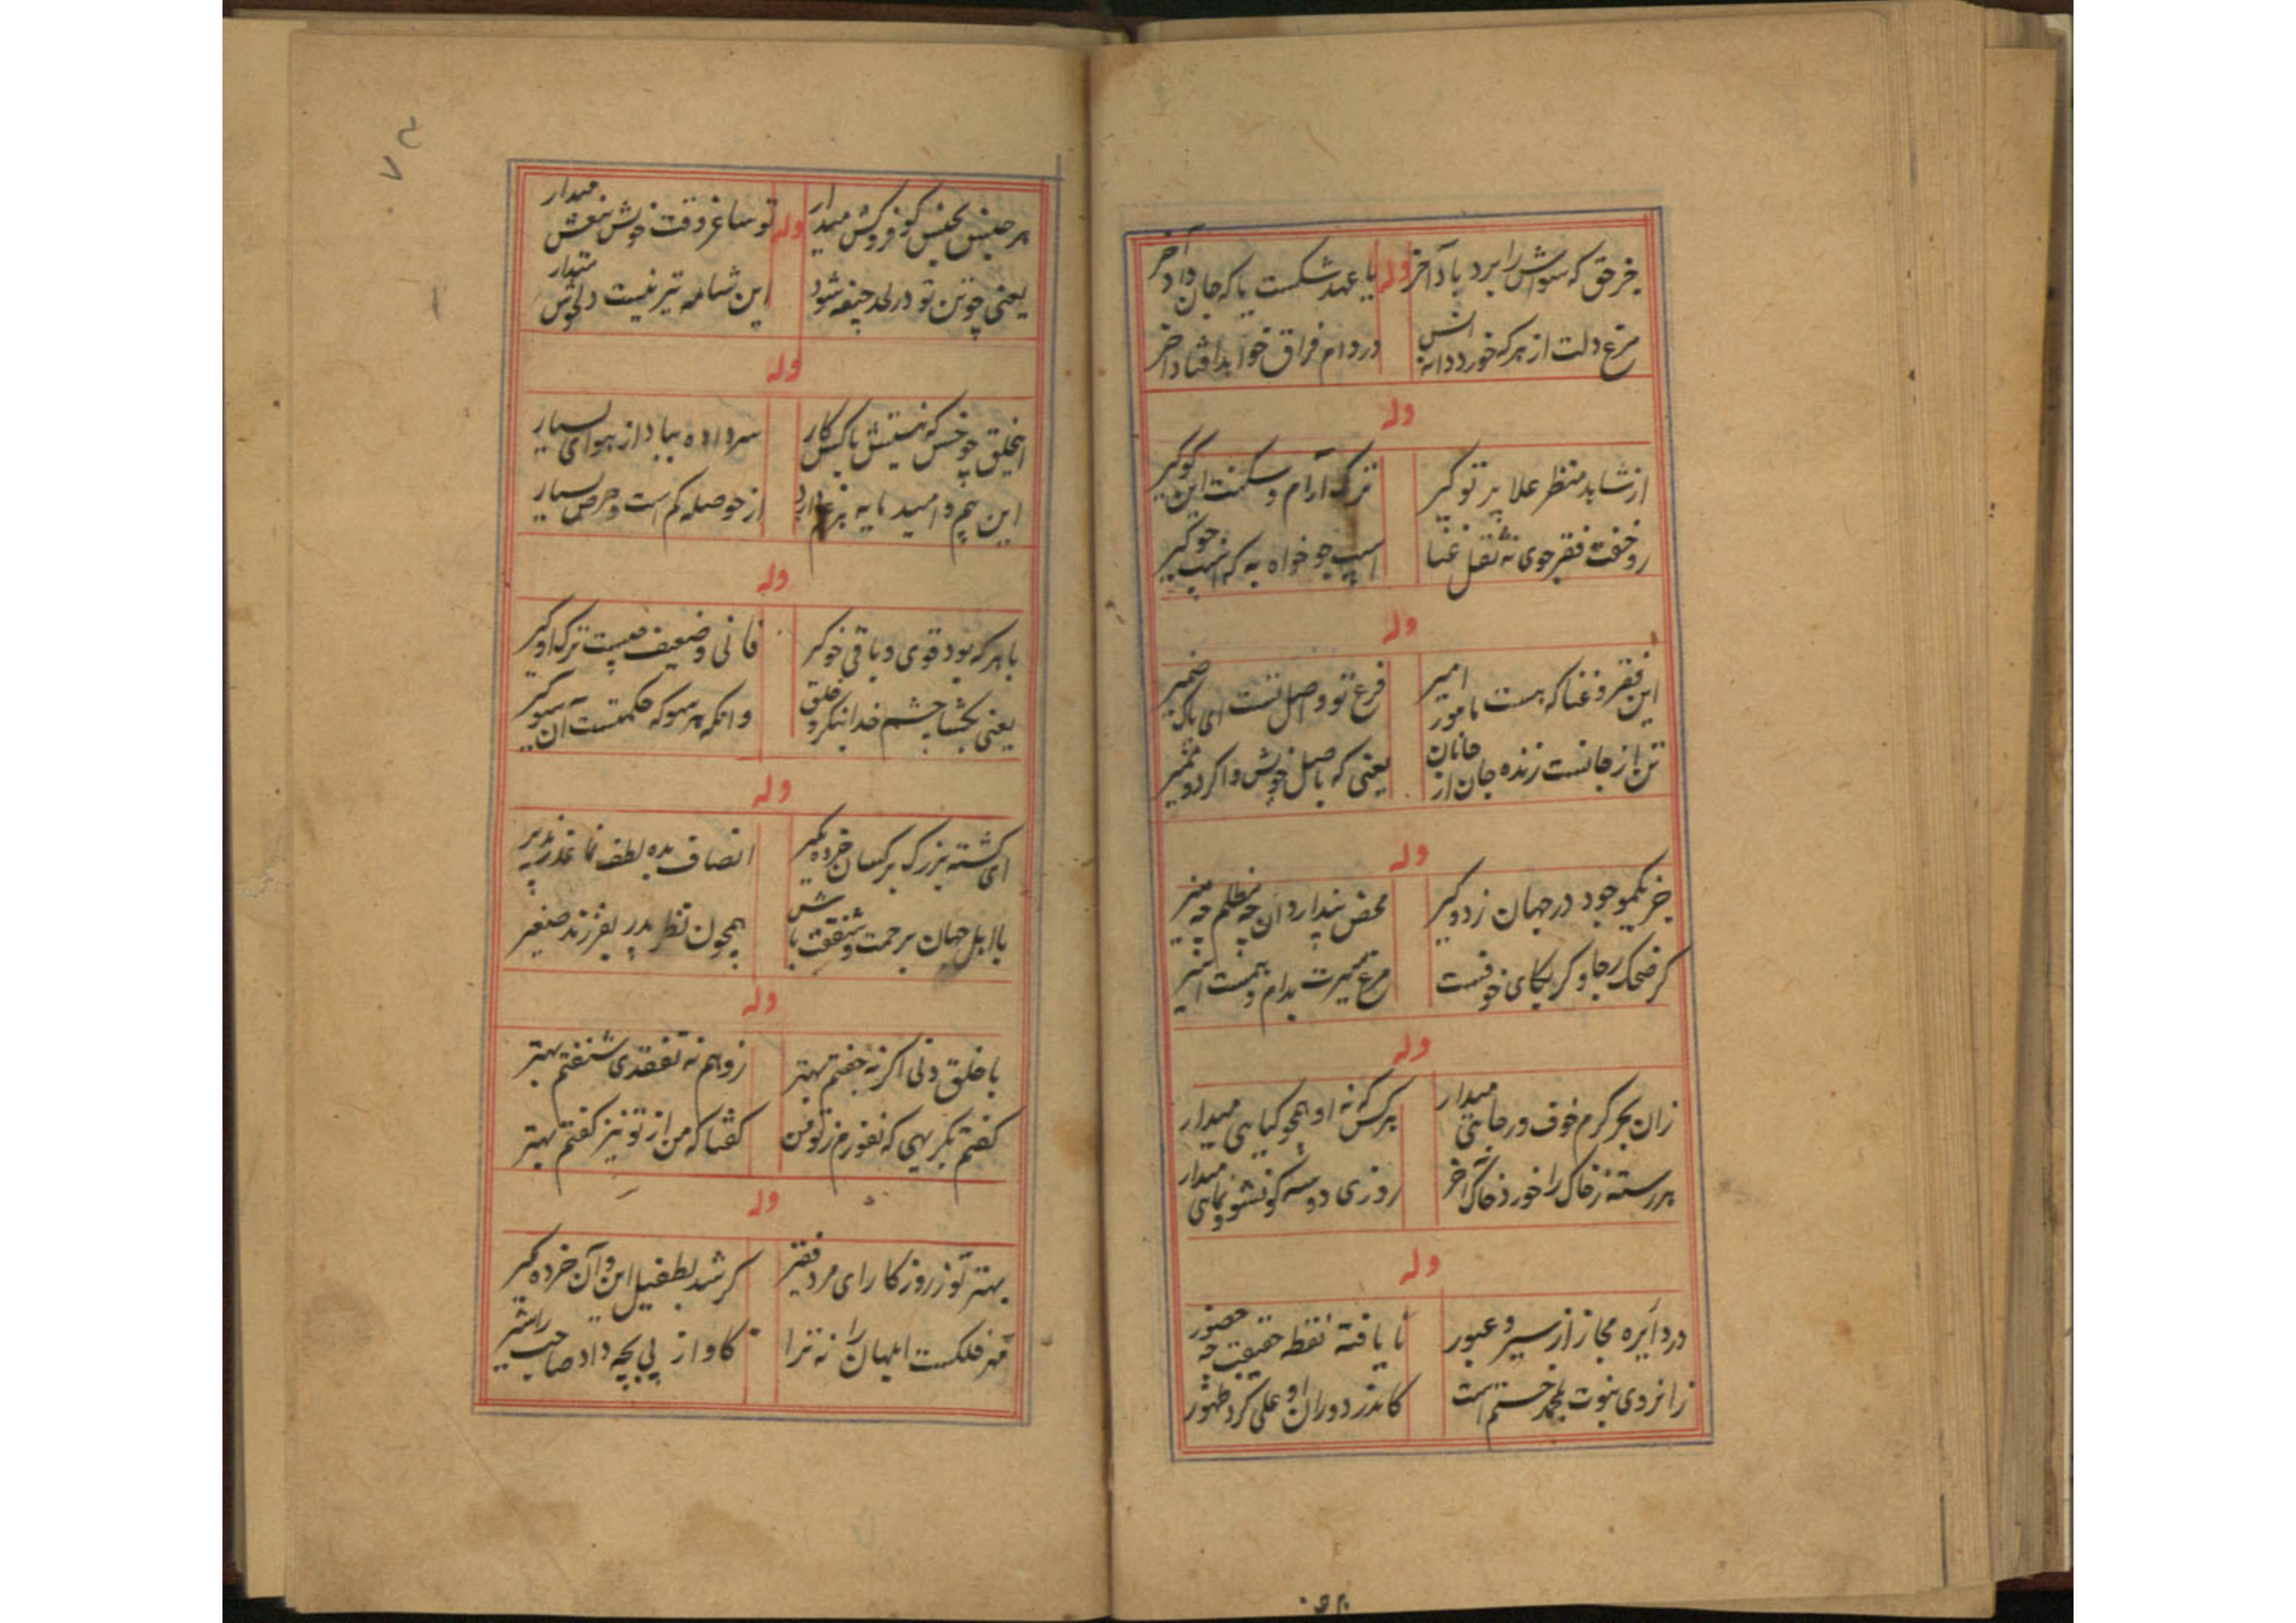 جز حق که سواش را برد باد آخر
وله
یا عهد شکست یا که جان داد آخر
مرغ دلت از هر که خورد دانه انس
در دام فراق خواهد افتاد آخر
وله
از شاهد منظر علا پرتو گیر
ترک آرام و سکنت این گو گیر
رو خفت فقر جوی نه ثقل غنا
اسپ جو خواه به که اسپ جو گیر
وله
این فقر و غنا که هست مامور امیر
فرع تو و اصل تست ای پاک ضمیر
تن از جانست زنده جان از جانان
یعنی که باصل خویش واگرد و ممیر
وله
جز یکموجود در جهان زد و گیر
محض پندار دان چه مظلم چه منیر
گر ضحک رجا و گر بکای خوفست
مرغ میرت بدام و همت اسیر
وله
زان بحر کرم خوف و رجایی میدار
هر کس که نه او همچو گیاهی میدار
هر رسته ز خاک را خورد خاک آخر
روزی دو سه گو نشو و نمایی میدار
وله
در دایره مجاز از سیر و عبور
نا یافته نقطه حقیقت چه حضور
زانروی نبوت بمحمد ختم است
کاندر دوران او علی کرد ظهور
هر جنس بجنس گو فروکش میدار
وله
تو ساغر وقت خویش بیغش میدار
یعنی چو تن تو در لحد جیفه شود
این شامه تیر نیست دلخوش میدار
وله
اینخلق چو خس که نیستش با کس کار
سر داده بباد از هوای بسیار
این بیم و امید مایه بر غم دارد
از حوصله کم است و حرص بسیار
وله
با هر که بود قوی و باقی خو گیر
فانی و ضعیف چیست ترک او گیر
یعنی بگشا چشم خدا بنگر و خلق
وانگه هر سو که حکمتست آن سو گیر
وله
ای گشته بزرگ بر کسان خرده مگیر
انصاف بده لطف نما عذر پذیر
با اهل جهان بر حمت و شفقت باش
همچون نظر پدر بفرزند صغیر
وله
با خلق دنی اگر نه جفتم بهتر
زو هم نه تفقدی شنفتم بهتر
گفتم بکریهی که نفورم ز تو من
گفتا که من از تو نیز گفتم بهتر
وله
بهتر تو ز روزگار ای مرد فقیر
گر شد بطفیل این و آن خرده مگیر
مهر فلکست ابلهان را نه ترا
گاو از پی بچه داد صاحب را شیر